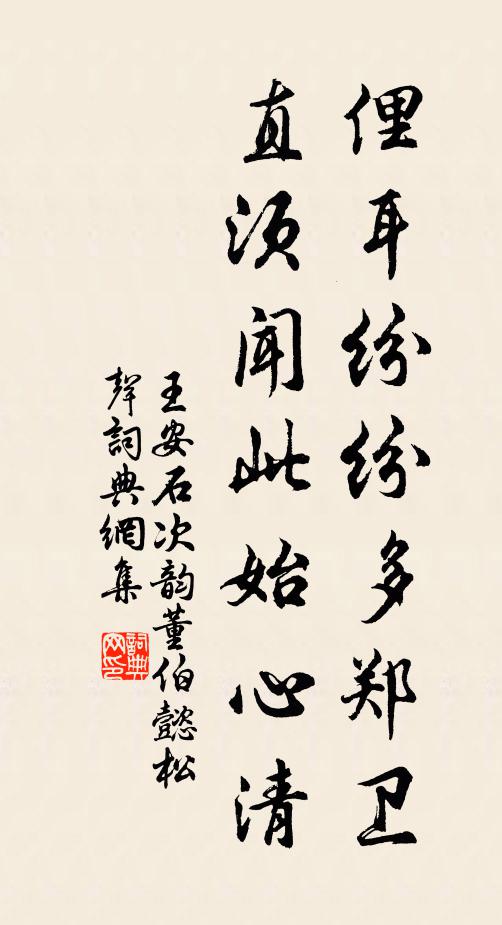 俚耳纷纷多郑卫
直须闻此始心清
王安石次韵董伯懿松
聲詞典網集
詞典网印